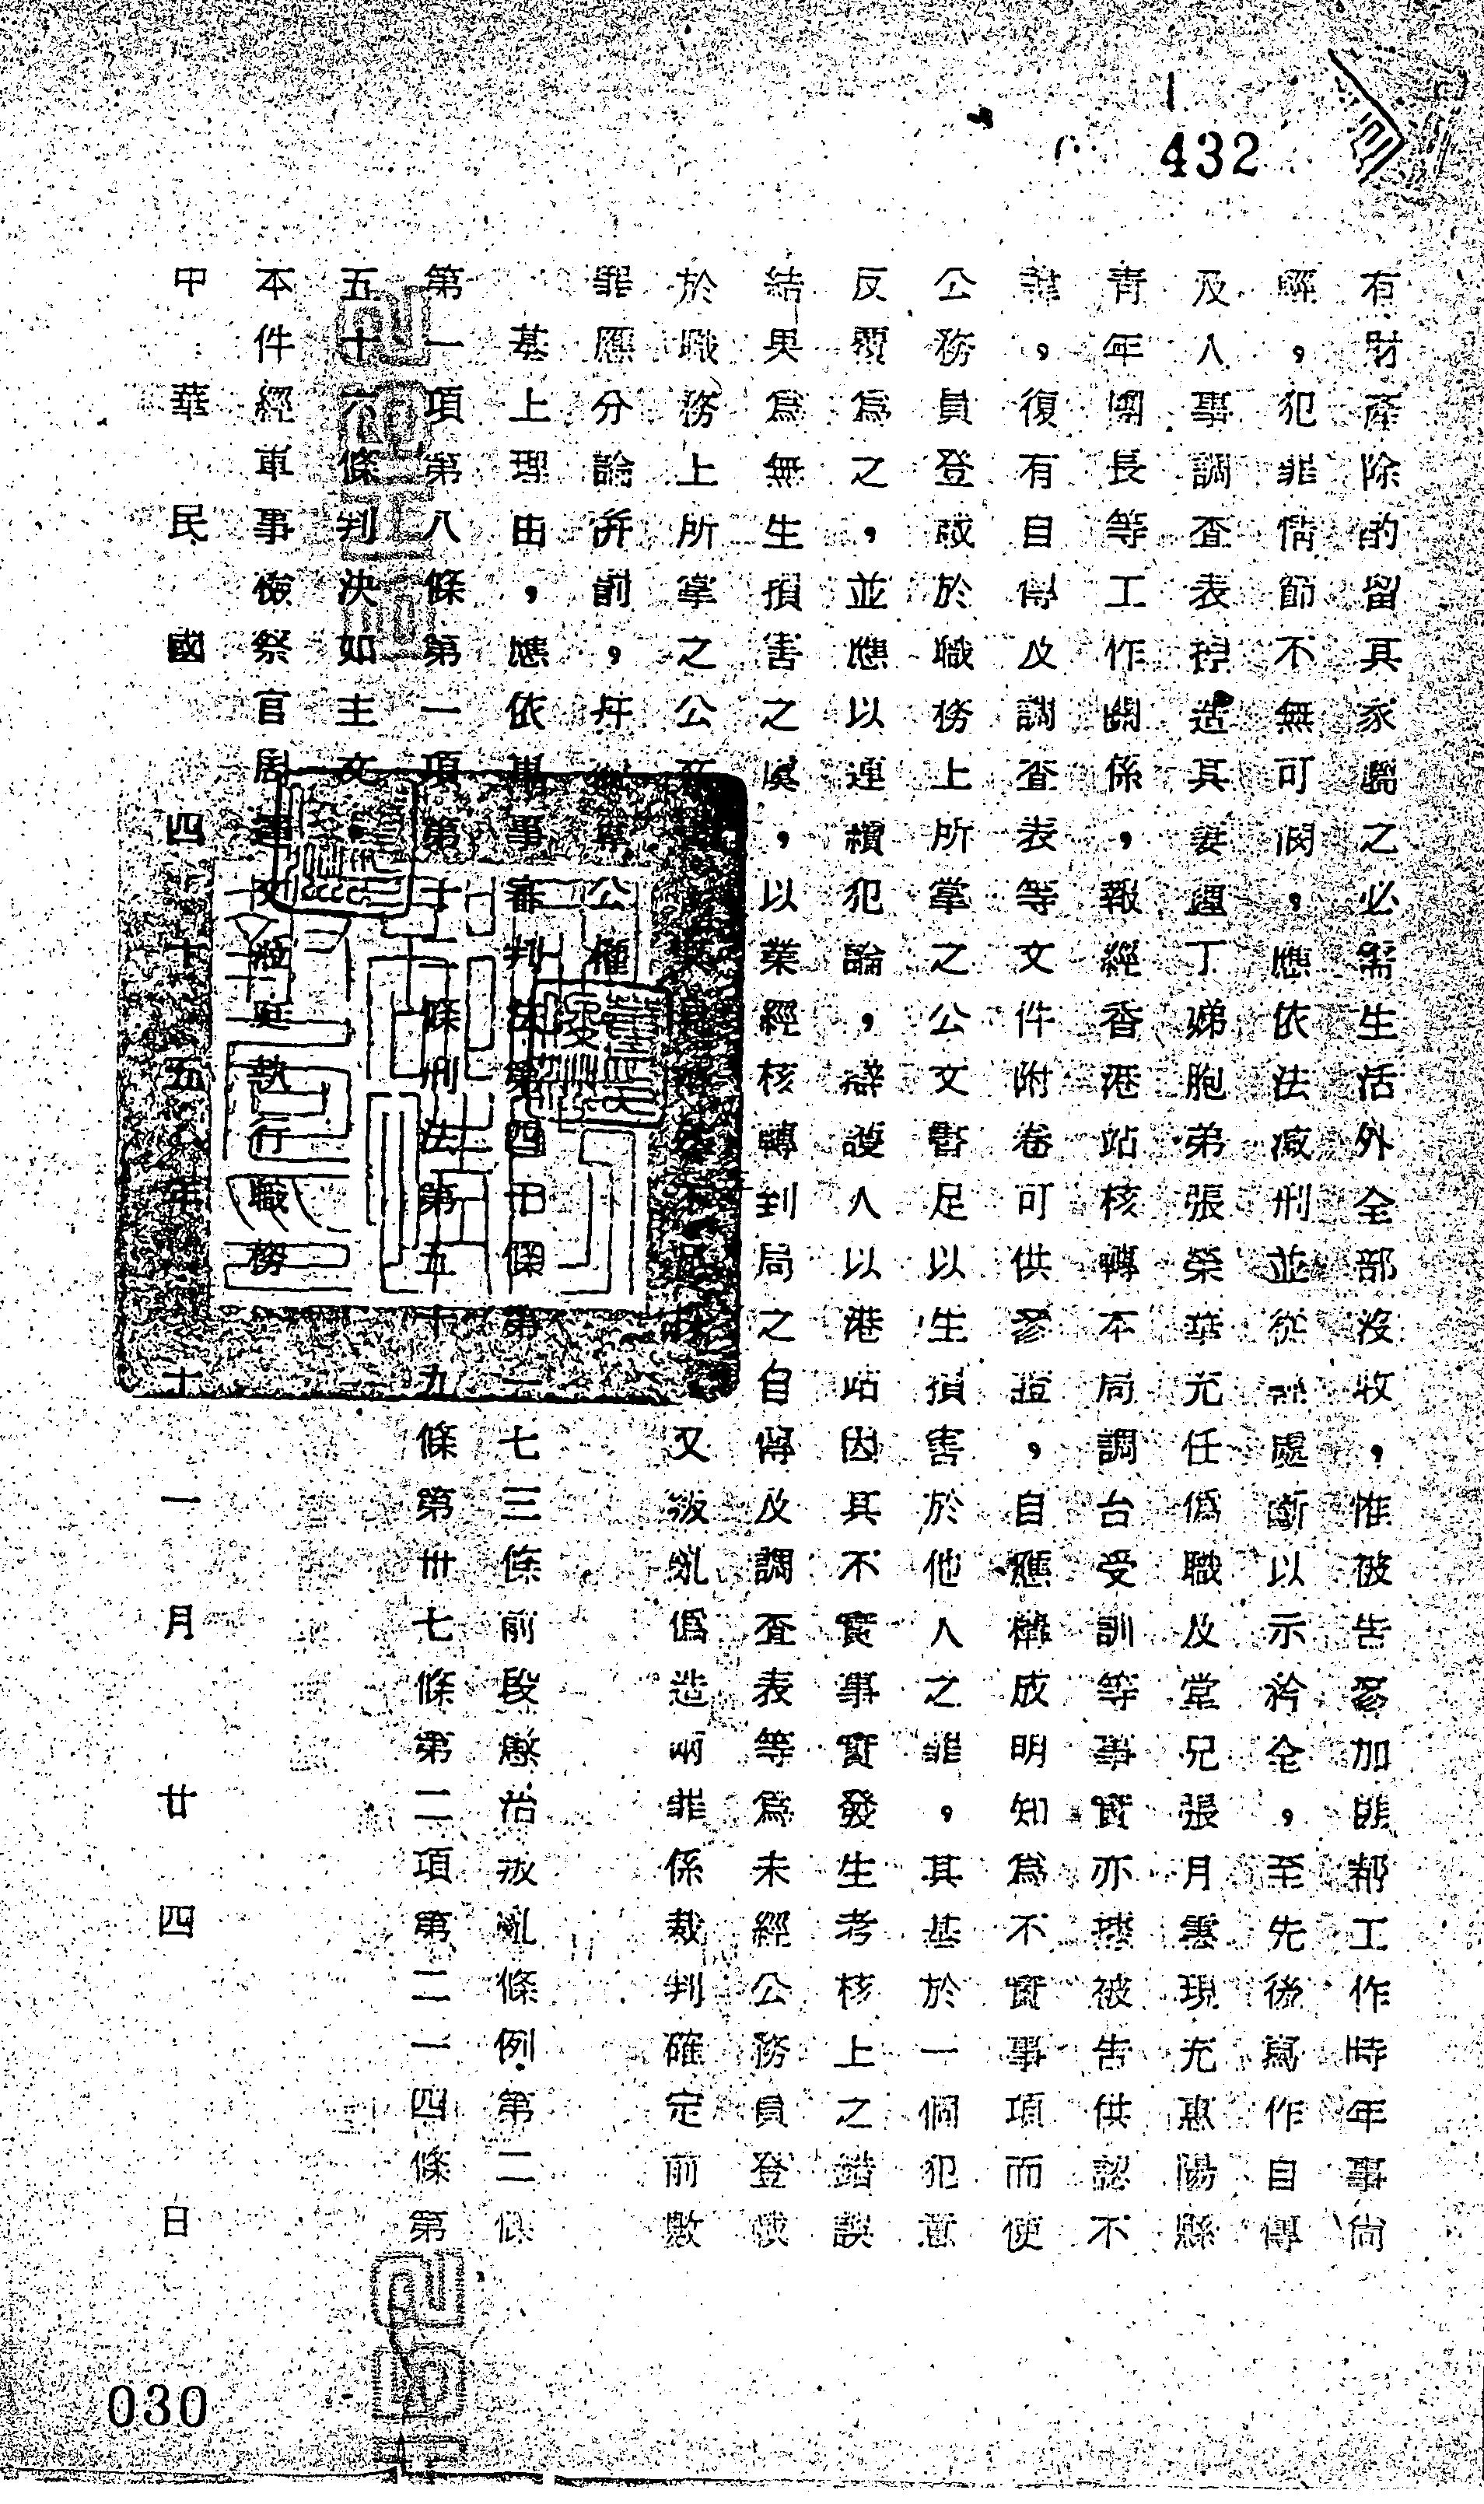 432
有財產除酌留其家屬之必需生活外全部沒收，惟被告參加匪幫工作時年事尚
輕，犯罪情節不無可憫，應依法減刑並從輕處斷以示矜全，至先後寫作自傳
及人事調查表捏造其妻邁丁娣胞弟張榮華充任偽職及堂兄張月惠現充惠陽縣
青年團長等工作關係，報經香港站核轉本局調台受訓等事實亦據被告供認不
諱，復有自傳及調查表等文件附卷可供參證，自應構成明知為不實事項而使
公務員登載於職務上所掌之公文書足以生損害於他人之罪，其基於一個犯意
反覆為之，並應以連續犯論，辯護人以港站因其不實事實發生考核上之錯誤
結果為無生損害之虞，以業經核轉到局之自傳及調查表等為未經公務員登載
於職務上所掌之公文書 又叛亂偽造兩罪係裁判確定前數
罪應分論併罰，并 奪公權
基上理由，應依軍事審判法第四十條第一七三條前段懲治叛亂條例第二條
第一項第八條第一項第十二條刑法第五十九條第卅七條第二項第二一四條第
五十六條判決如主文
本件經軍事檢察官周 蒞庭執行職務
中華民國四十五年十一月廿四日
030